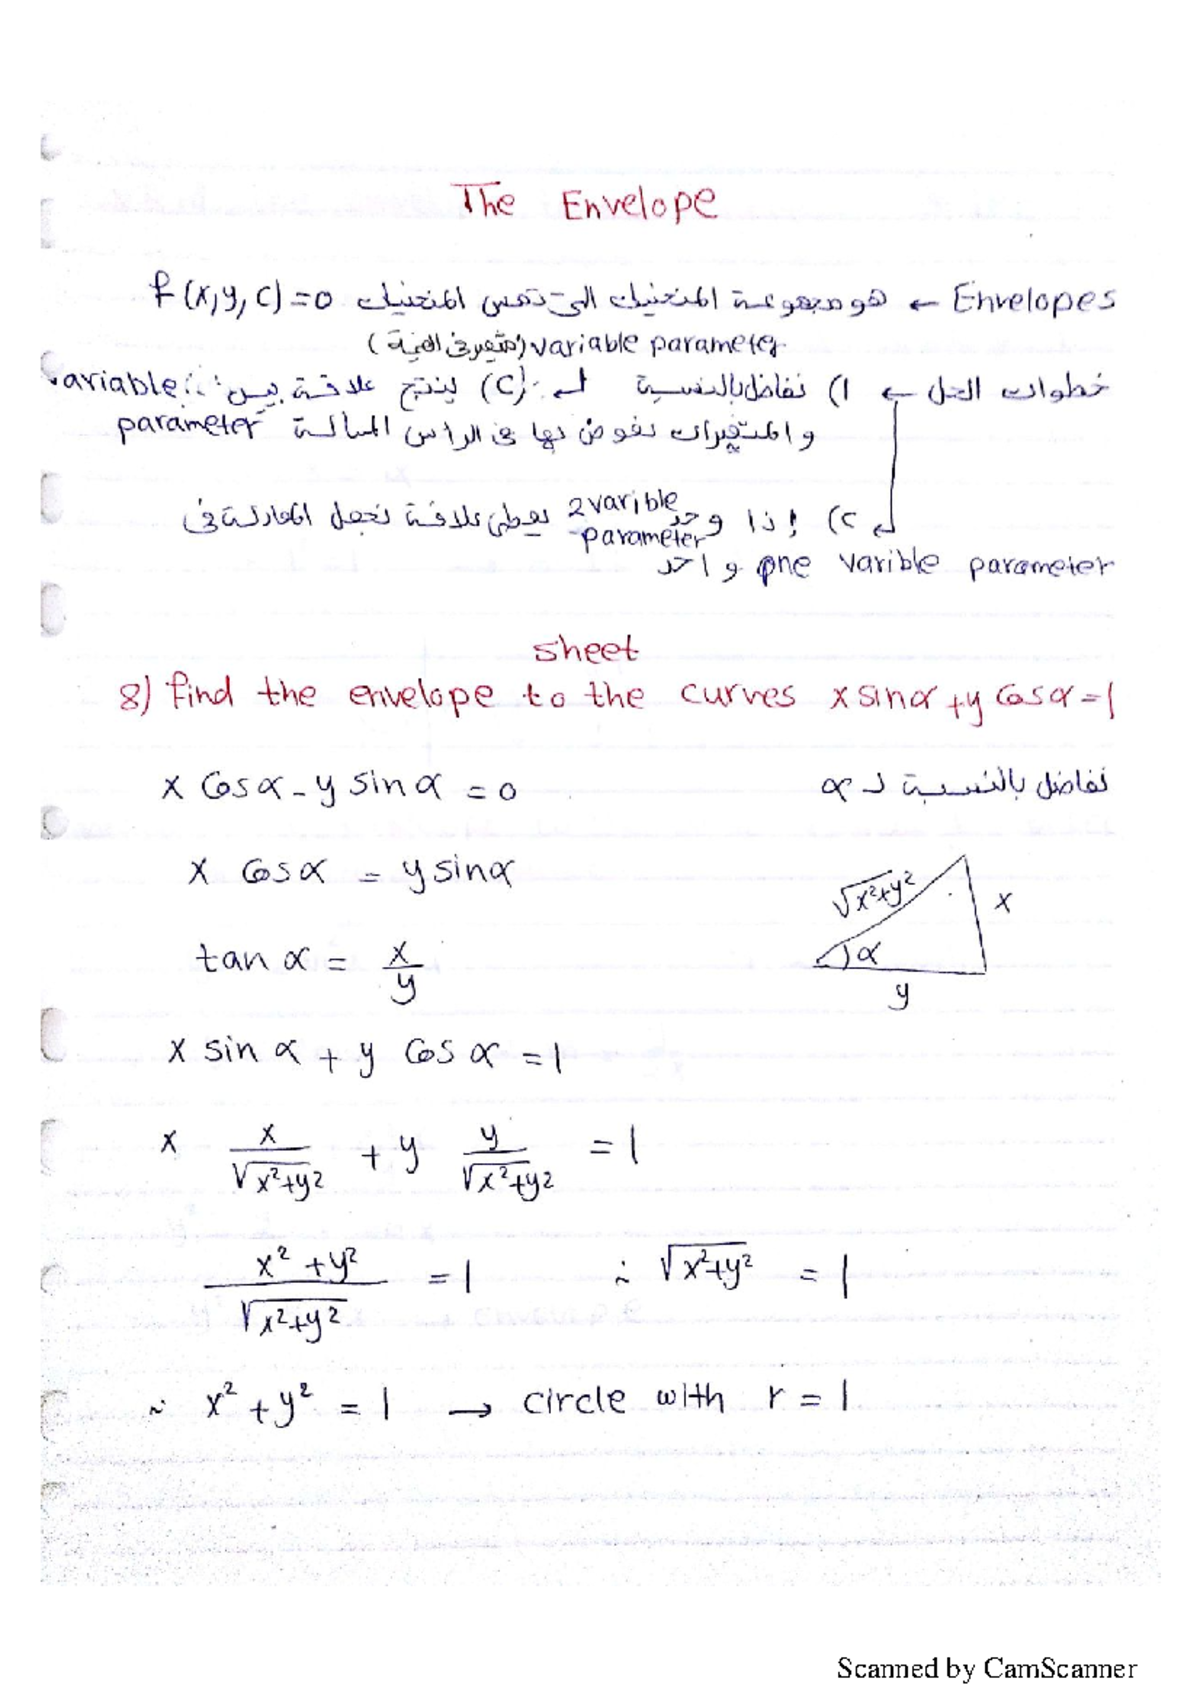 The Envelope
Envelopes ← هو مجموعة المنحنيات التى تمس المنحنيات f(x,y,c)=0
variable parameter (متغير فى
خطوات الحل ← 1) نفاضل بالنسبة لـ (c) ينتج علاقة بين variable
parameter والمتغيرات نعوض بها فى الرأس المسألة
2) إذا وجد 2 varible parameter يعطى علاقة نجعل المعادلة فى
one varible parameter واحد
sheet
8) find the envelope to the curves x sinα + y cosα = 1
نفاضل بالنسبة لـ α
x cosα - y sinα = 0
x cosα = y sinα
√x²+y²
x
α
y
tan α = x/y
x sin α + y cos α = 1
x x/√x²+y² + y y/√x²+y² = 1
x²+y²/√x²+y² = 1 ∴ √x²+y² = 1
∴ x² + y² = 1 → circle with r = 1
Scanned by CamScanner